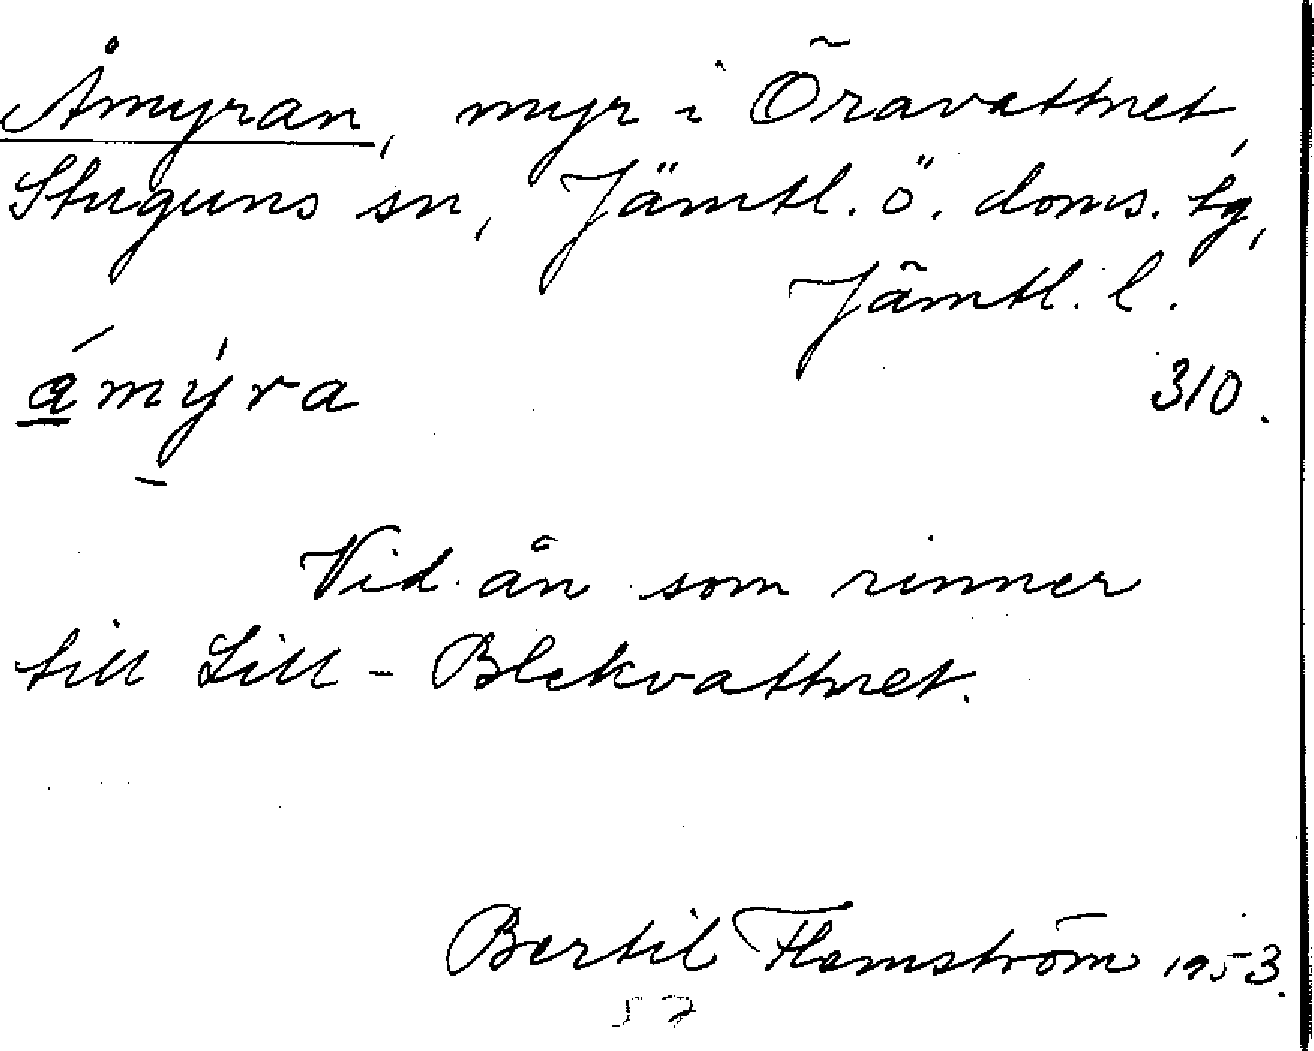 Åmyran, myr i Öravattnet,
Stuguns sn, Jämtl. ö. doms. tg,
Jämtl. l.
á̲̲mýra
310.
Vid ån som rinner
till Lill-Blekvattnet.
Bertil Flemström 1953.
57